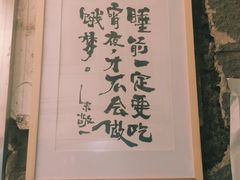 睡前一定要吃
宵夜,才不会做
饿梦。
朱敬一